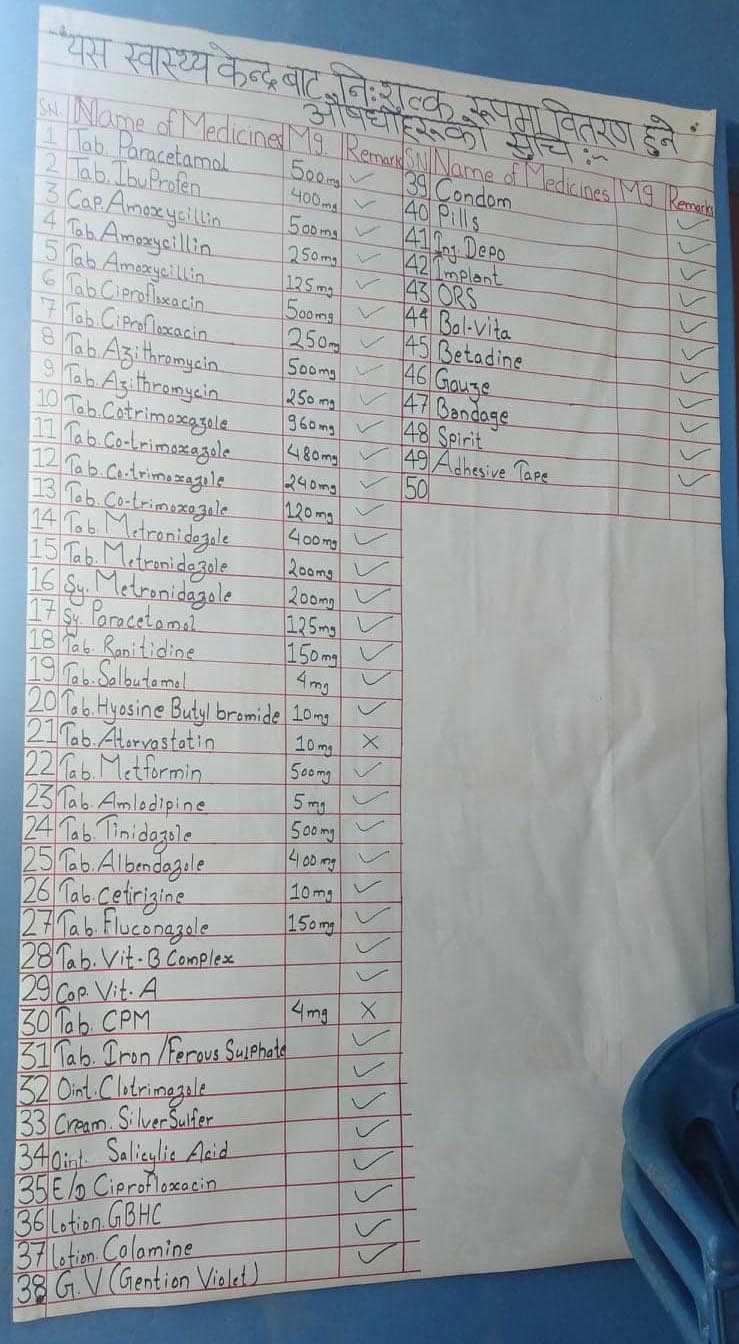 यस स्वास्थ्य केन्द्र बाट नि:शुल्क रूपमा वितरण हुने
औषधीहरूको सुचि :-
SN. Name of Medicines Mg. Remark
1 Tab. Paracetamol 500mg ✓
2 Tab. Ibuprofen 400mg ✓
3 Cap. Amoxycillin 500mg ✓
4 Tab Amoxycillin 250mg ✓
5 Tab Amoxycillin 125mg ✓
6 Tab Ciprofloxacin 500mg ✓
7 Tab. Ciprofloxacin 250mg ✓
8 Tab. Azithromycin 500mg ✓
9 Tab. Azithromycin 250mg ✓
10 Tab. Cotrimoxazole 960mg ✓
11 Tab. Co-trimoxazole 480mg ✓
12 Tab. Co-trimoxazole 240mg ✓
13 Tab. Co-trimoxazole 120mg ✓
14 Tab. Metronidazole 400mg ✓
15 Tab. Metronidazole 200mg ✓
16 Sy. Metronidazole 200mg ✓
17 Sy. Paracetamol 125mg ✓
18 Tab. Ranitidine 150mg ✓
19 Tab. Salbutamol 4mg ✓
20 Tab. Hyosine Butyl bromide 10mg ✓
21 Tab. Atorvastatin 10mg ×
22 Tab. Metformin 500mg ✓
23 Tab. Amlodipine 5mg ✓
24 Tab. Tinidazole 500mg ✓
25 Tab. Albendazole 400mg ✓
26 Tab. Cetirizine 10mg ✓
27 Tab. Fluconazole 150mg ✓
28 Tab. Vit-B Complex ✓
29 Cap. Vit. A ✓
30 Tab. CPM 4mg ×
31 Tab. Iron/Ferous Sulphate ✓
32 Oint. Clotrimazole ✓
33 Cream. Silver Sulfer ✓
34 Oint. Salicylic Acid ✓
35 E/D Ciprofloxacin ✓
36 Lotion. GBHC ✓
37 Lotion. Calamine ✓
38 G.V (Gention Violet) ✓
SN Name of Medicines Mg Remarks
39 Condom ✓
40 Pills ✓
41 Inj. Depo ✓
42 Implant ✓
43 ORS ✓
44 Bal-Vita ✓
45 Betadine ✓
46 Gauze ✓
47 Bandage ✓
48 Spirit ✓
49 Adhesive Tape ✓
50